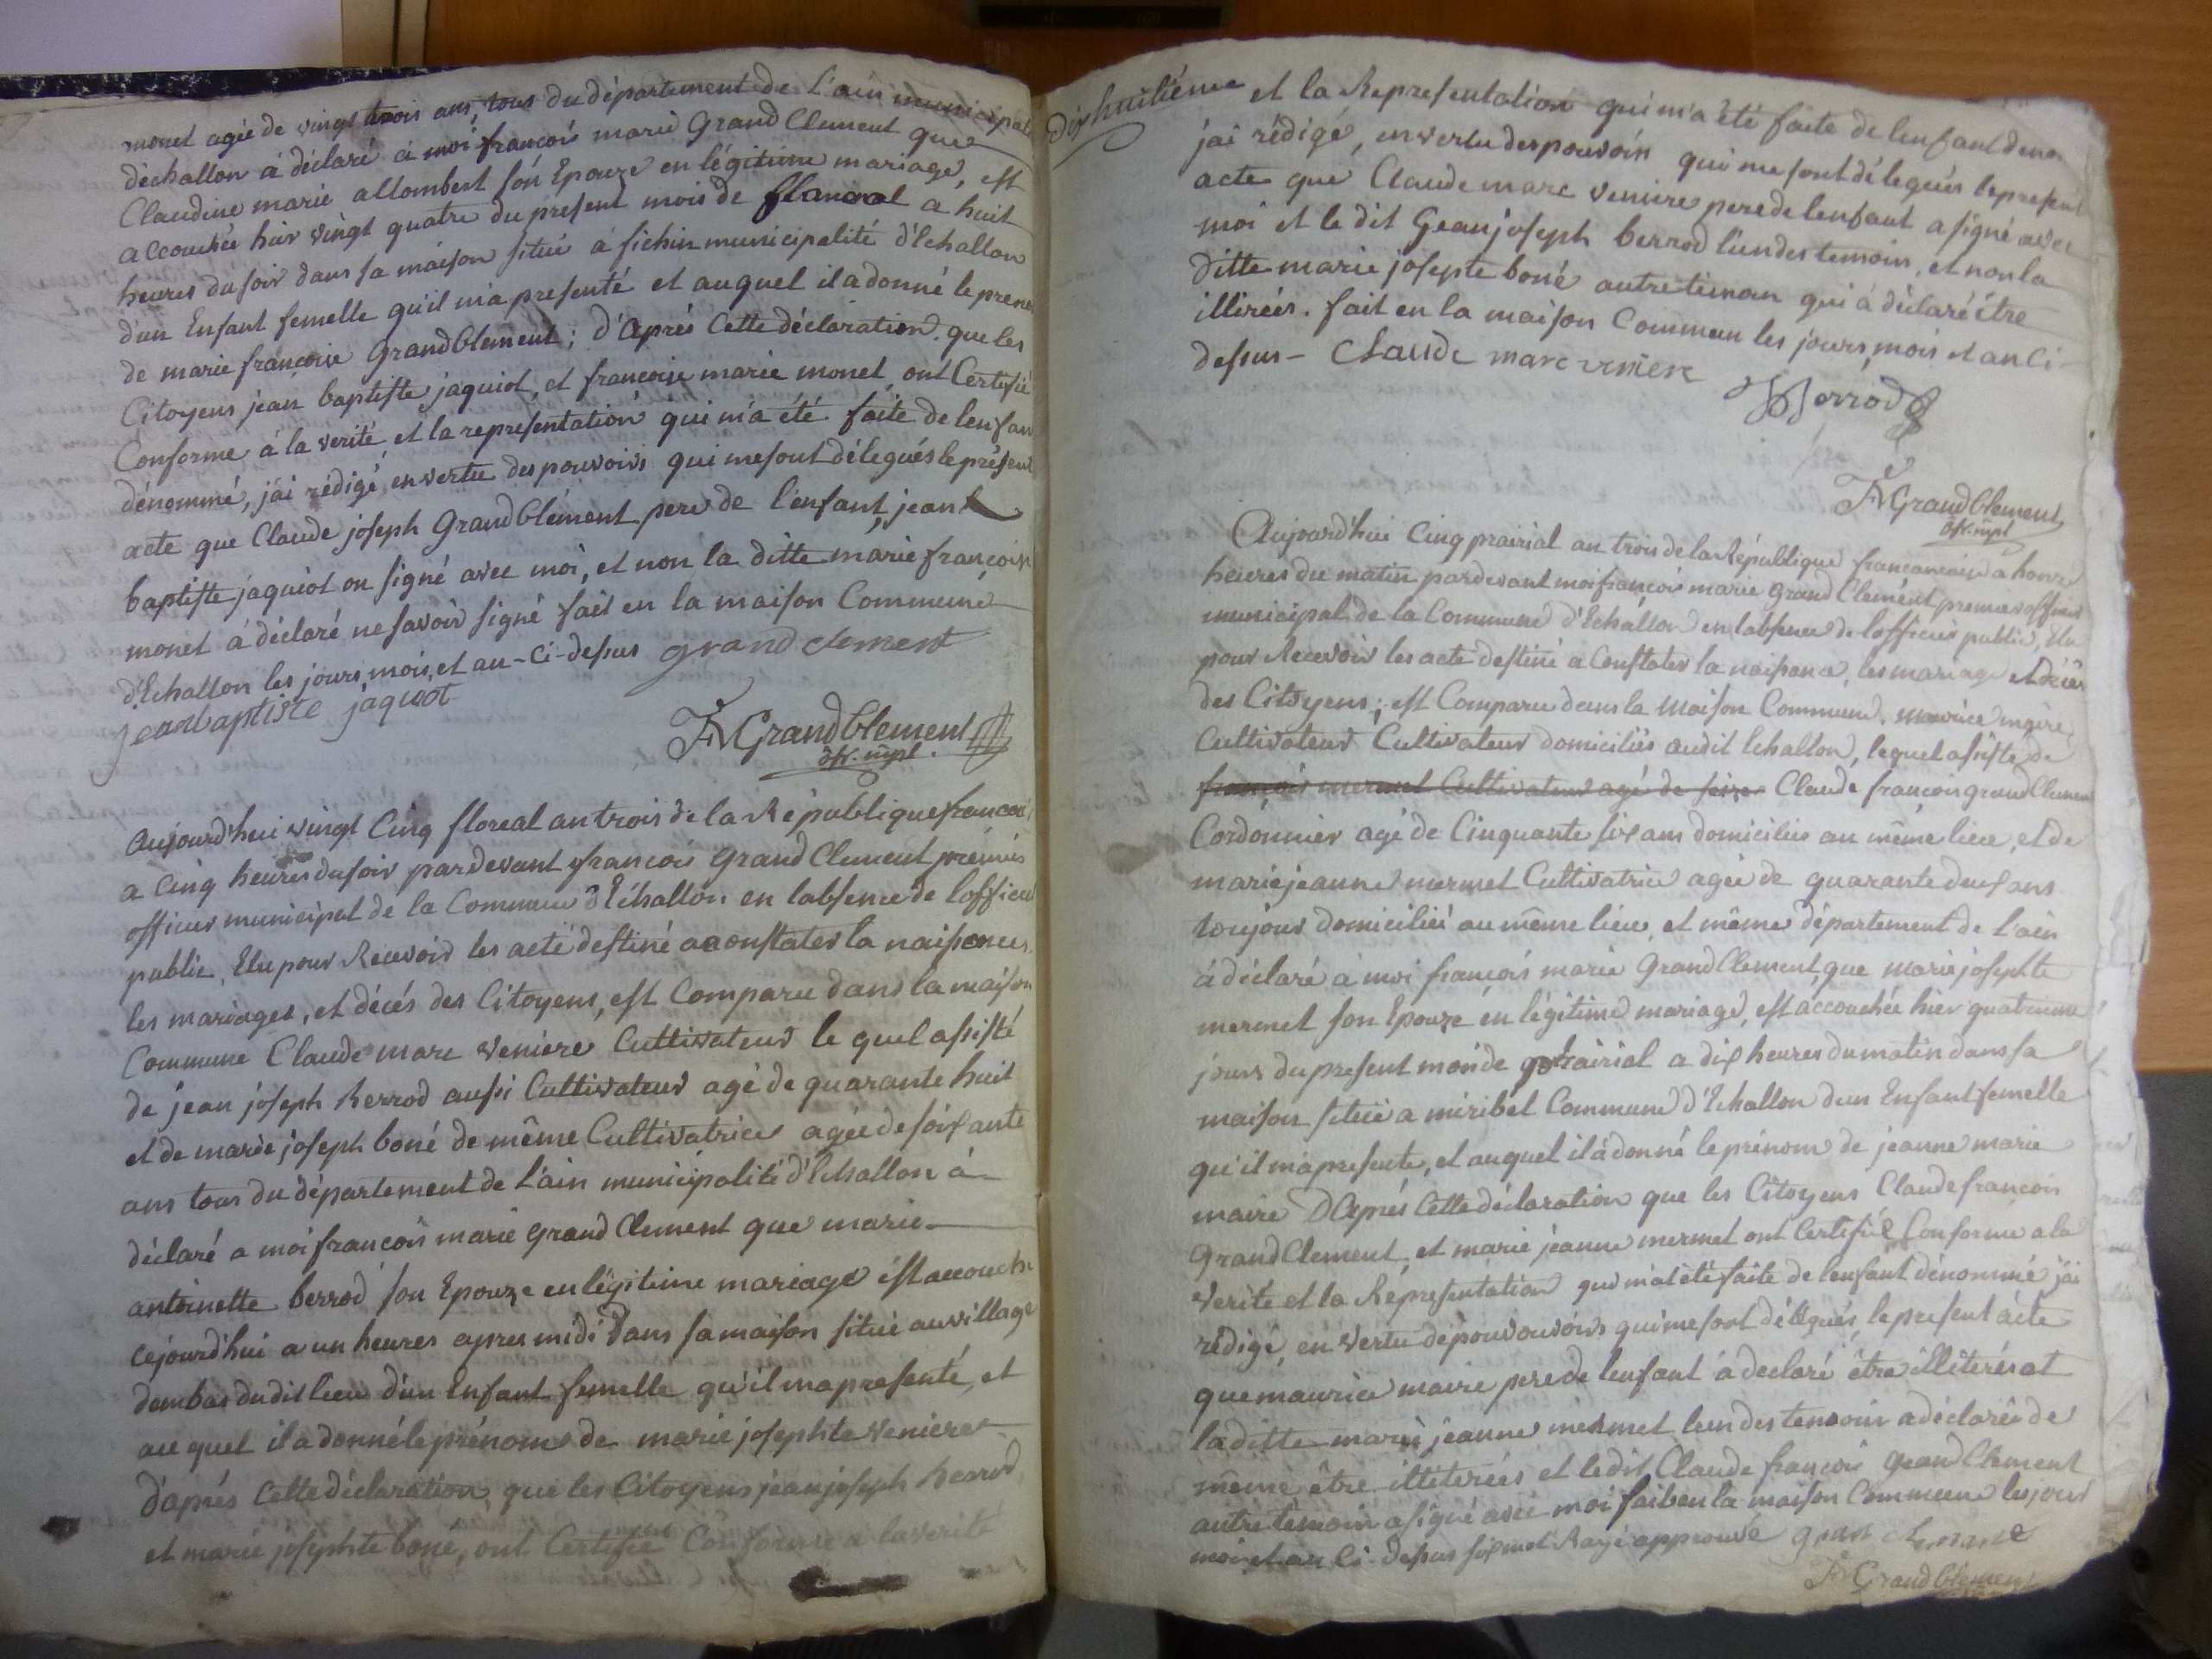 monet agée de vingt trois ans, tous du département de L'ain municipal
d'échallon à déclaré à moi françois marie Grand Clement que
Claudine marie allombert son Epouze en légitime mariage, est
accouchée hier vingt quatre du present mois de floreal a huit
heures du soir dans sa maison situé à sichin municipalité d'Echallon
d'un Enfant femelle qu'il m'a presenté et auquel il a donné le preno
de marie françoise Grand Clement ; d'après Cette déclaration que les
Citoyens jean baptiste jaquiot, et françoise marie monet, ont Certifié
Conforme à la verité, et la representation qui m'a été faite de lenfan
dénommé, j'ai rédigé, en vertu des pouvoirs qui me sont délegués le présent
acte que Claude joseph Grand Clement pere de l'enfant, jean
baptiste jaquiot on signé avec moi, et non la ditte marie françoise
monet à déclaré ne savoir signé fait en la maison Commune
d'Echallon les jours, mois, et an-Ci-dessus grand clement
jean baptiste jaquiot
FM Grand Clement
ofr. mpl.
Aujourd'hui vingt Cinq floreal an trois de la République francai
a Cinq heures du soir pardevant françois Grand Clement prémier
officier municipal de la Commune d'Echallon en labsence de l'officier
public, Elu pour Recevoir les acte destiné a constater la naissances,
les mariages, et décés des Citoyens, est Comparu dans la maison
Commune Claude marc veniere Cultivateur le quel assisté
de jean joseph berrod aussi Cultivateur agé de quarante huit
et de marie joseph boné de même Cultivatrice agée de soixante
ans tous du département de L'ain municipalité d'Echallon à
déclaré a moi françois marie Grand Clement que marie
antoinette berrod son Epouze en légitime mariage est accouch
cejourd'hui a un heures apres midi dans sa maison situé au village
dembas dudit lieu d'un Enfant femelle qu'il m'a presenté, et
au quel il a donné le prénom de marie josephte veniere
d'après Cette déclaration, que les Citoyens jean joseph berrod
et marie josephte boné, ont Certifié Conforme a la verité
dix huitième
et la Representation qui m'a été faite de lenfant deno
j'ai rédigé, en vertu des pouvoirs qui me sont délegués le present
acte que Claude marc veniere pere de lenfant a signé avec
moi et le dit Jean joseph berrod l'un des temoin, et non la
ditte marie josepte boné autre temoin qui à déclaré être
illirées. fait en la maison Commun les jours, mois et an Ci-
dessus - Claude marc veniere
JJBerrod
FM Grand Clement
ofr. mpl
Aujourd'hui Cinq prairial an trois de la République a honze
heures du matin pardevant moi françois marie Grand Clement premier officier
municipal de la Commune d'Echallon en labsence de l'officier public, Elu
pour Recevoir les acte destiné a Constater la naissance, les mariage et décès
des Citoyens ; est Comparu dans la maison Commune, maurice maire
Cultivateur Cultivateur domiciliés audit Echallon, lequel assisté de
françois mermet Cultivateur agé de seize Claude françois grand Clement
Cordonnier agé de Cinquante six ans domicilié au même lieu, et de
marie jeanne mermet Cultivatrice agée de quarante deux ans
toujour domicilié au même lieu, et même département de L'ain
à déclaré à moi françois marie Grand Clement, que marie josephte
mermet son Epouze en légitime mariage, est accouchée hier quatrieme
jours du present moi de prairial a dix heures du matin dans sa
maison située a miribel Commune d'Echallon d'un Enfant femelle
qu'il m'a presente, et auquel il à donné le prénom de jeanne marie
maire D'après Cette déclaration que les Citoyens Claude françois
Grand Clement, et marie jeanne mermet ont Certifié Conforme a la
verité et la Representation qui m'at été faite de lenfant dénommé j'ai
rédigé, en vertu dépouvouvoirs qui me sont délegués, le present acte
que maurice maire pere de lenfant à declaré être illiterés at
la ditte marie jeanne mermet l'un des temoin a déclarée de
même être illéterées et ledit Claude françois Grand Clement
autre temoin a signé avec moi fait en la maison Commune les jour
moi et an Ci-dessus six mot Rayé approuvé grand clement
FM Grand Clement